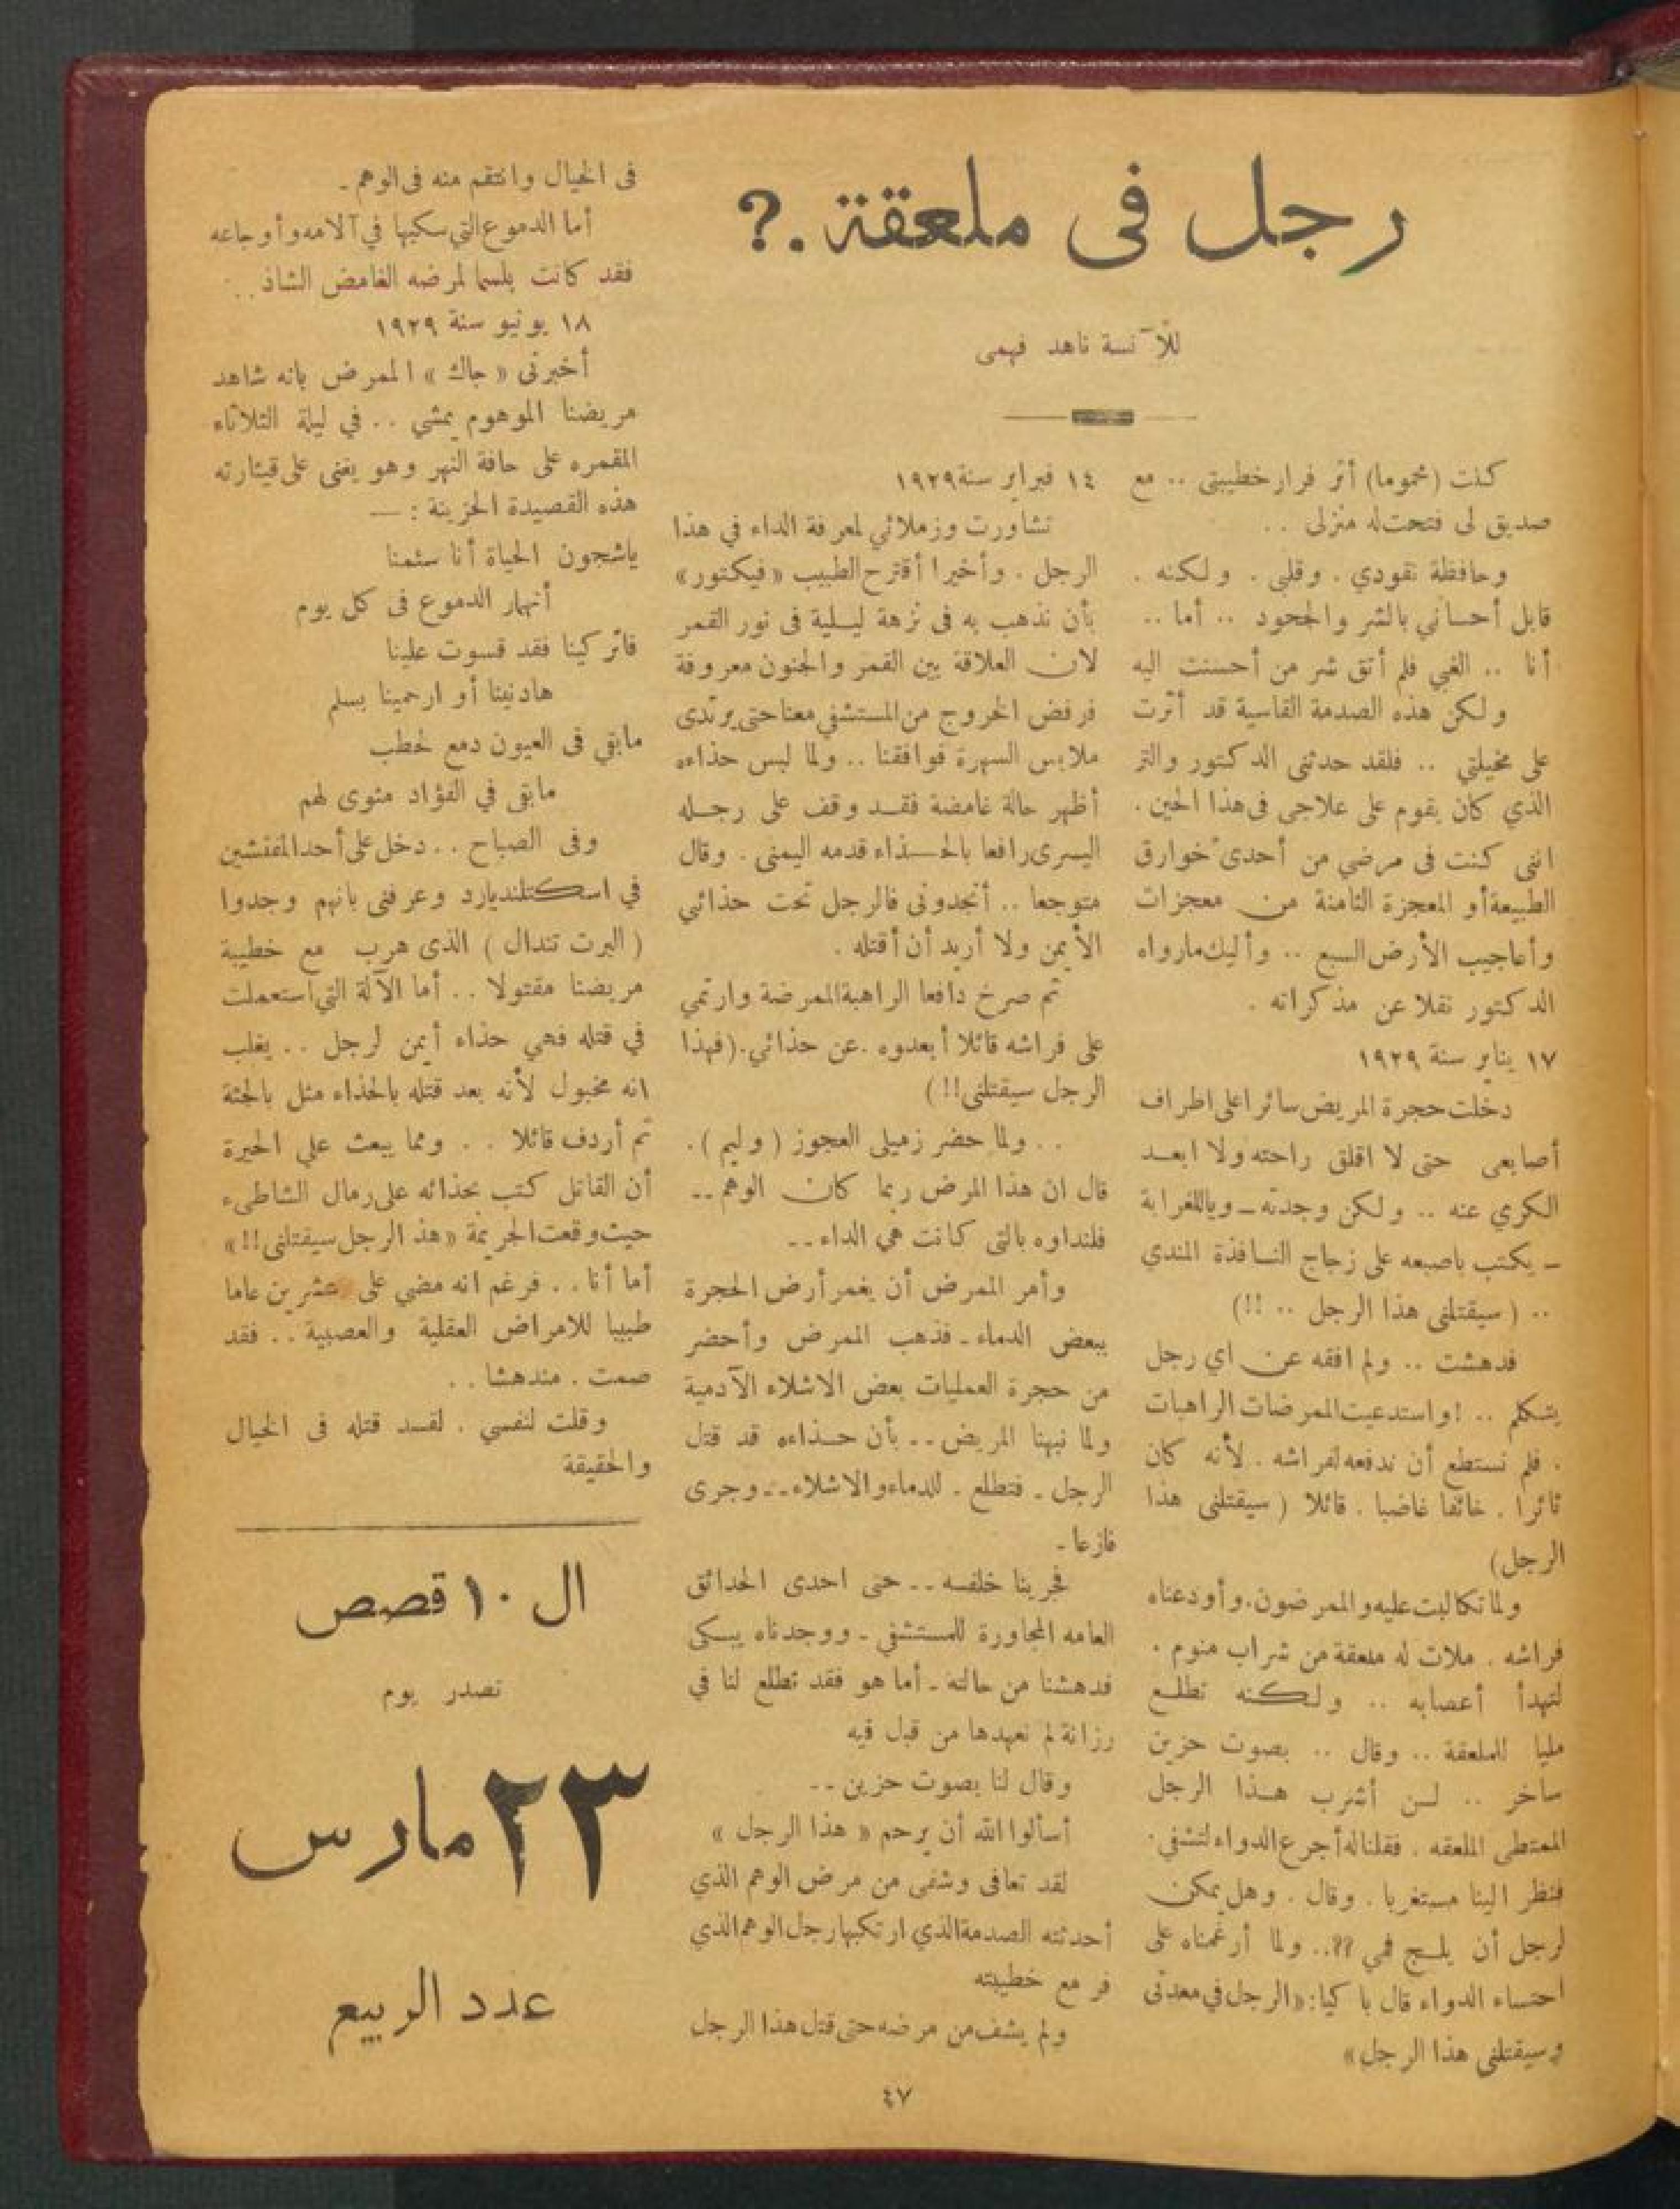 رجل فى ملعقة .?
للآنسة ناهد فهمى
كنت (محموما) أثر فرار خطيبتى .. مع
صديق لى فتحت له منزلى ..
وحافظة نقودي . وقلبى . ولكنه .
قابل أحساني بالشر والجحود .. أما ..
أنا .. الغبي فلم أتق شر من أحسنت اليه
ولكن هذه الصدمة القاسية قد أثرت
على مخيلتي .. فلقد حدثنى الدكتور والتر
الذي كان يقوم على علاجى فى هذا الحين .
اننى كنت فى مرضي من أحدى خوارق
الطبيعة أو المعجزة الثامنة من معجزات
وأعاجيب الأرض السبع .. وأليك مارواه
الدكتور نقلا عن مذكراته .
١٧ يناير سنة ١٩٢٩
دخلت حجرة المريض سائرا على اطراف
أصابعى حتى لا اقلق راحته ولا ابعد
الكري عنه .. ولكن وجدته ـ وياللغرابة
ـ يكتب باصبعه على زجاج النافذة المندي
.. (سيقتلنى هذا الرجل .. !!)
فدهشت .. ولم افقه عن اي رجل
يتكلم .. ! واستدعيت الممرضات الراهبات
. فلم نستطع أن ندفعه لفراشه . لأنه كان
ثائرا . خائفا غاضبا . قائلا (سيقتلنى هذا
الرجل)
ولما تكالبت عليه والممرضون . وأودعناه
فراشه . ملات له ملعقة من شراب منوم .
لتهدأ أعصابه .. ولكنه تطلع
مليا للملعقة .. وقال .. بصوت حزين
ساخر .. لن أشرب هذا الرجل
الممتطى الملعقه . فقلنا له أجرع الدواء لتشفي .
فنظر الينا مستغربا . وقال . وهل يمكن
لرجل أن يلج فمي ??.. ولما أرغمناه على
احتساء الدواء قال با كيا: «الرجل في معدتى
وسيقتلنى هذا الرجل»
١٤ فبراير سنة ١٩٢٩
تشاورت وزملائي لمعرفة الداء في هذا
الرجل . وأخيرا أقترح الطبيب «فيكتور»
بأن نذهب به فى نزهة ليلية فى نور القمر
لان العلاقة بين القمر والجنون معروفة
فرفض الخروج من المستشفي معنا حتى يرتدى
ملابس السهرة فوافقنا .. ولما لبس حذاءه
أظهر حالة غامضة فقد وقف على رجله
اليسرى رافعا بالحذاء قدمه اليمنى . وقال
متوجعا .. أنجدونى فالرجل تحت حذائي
الأيمن ولا أريد أن أقتله .
ثم صرخ دافعا الراهبة الممرضة وارتمي
على فراشه قائلا أبعدوه . عن حذائي . (فهذا
الرجل سيقتلنى!!)
.. ولما حضر زميلى العجوز (وليم) .
قال ان هذا المرض ربما كان الوهم ..
فلنداوه بالتى كانت هي الداء ..
وأمر الممرض أن يغمر أرض الحجرة
ببعض الدماء ـ فذهب الممرض وأحضر
من حجرة العمليات بعض الاشلاء الآدمية
ولما نبهنا المريض .. بأن حذاءه قد قتل
الرجل . فتطلع . للدماء والاشلاء .. وجرى
فازعا ـ
فجرينا خلفه .. حتى احدى الحدائق
العامه المجاورة للمستشفي ـ ووجدناه يبكى
فدهشنا من حالته ـ أما هو فقد تطلع لنا في
رزانة لم نعهدها من قبل فيه
وقال لنا بصوت حزين ..
أسألوا الله أن يرحم « هذا الرجل »
لقد تعافى وشفى من مرض الوهم الذي
أحدثته الصدمة الذي ارتكبها رجل الوهم الذي
فر مع خطيبته
ولم يشف من مرضه حتى قتل هذا الرجل
فى الخيال وانتقم منه فى الوهم .
أما الدموع التي سكبها في آلامه وأوجاعه
فقد كانت بلسما لمرضه الغامض الشاذ ..
١٨ يونيو سنة ١٩٢٩
أخبرنى « جاك » الممرض بانه شاهد
مريضنا الموهوم يمشي .. في ليلة الثلاثاء
المقمره على حافة النهر وهو يغنى على قيثارته
هذه القصيدة الحزينة : ـ
ياشجون الحياة أنا سئمنا
أنهار الدموع فى كل يوم
فاتركينا فقد قسوت علينا
هادنينا أو ارحمينا بسلم
مابقي فى العيون دمع لخطب
مابقى في الفؤاد مثوى لهم
وفى الصباح .. دخل على أحد المفتشين
في اسكتلنديارد وعرفنى بانهم وجدوا
(البرت تندال) الذى هرب مع خطيبة
مريضنا مقتولا .. أما الآلة التي استعملت
في قتله فهي حذاء أيمن لرجل .. يغلب
انه مخبول لأنه بعد قتله بالحذاء مثل بالجثة
ثم أردف قائلا .. ومما يبعث علي الحيرة
أن القاتل كتب بحذائه على رمال الشاطىء
حيث وقعت الجريمة «هذ الرجل سيقتلنى!!»
أما أنا .. فرغم انه مضي على عشرين عاما
طبيبا للامراض العقلية والعصبية .. فقد
صمت . مندهشا ..
وقلت لنفسي . لقد قتله فى الخيال
والحقيقة
ال ١٠ قصص
تصدر يوم
٢٣ مارس
عدد الربيع
٤٧